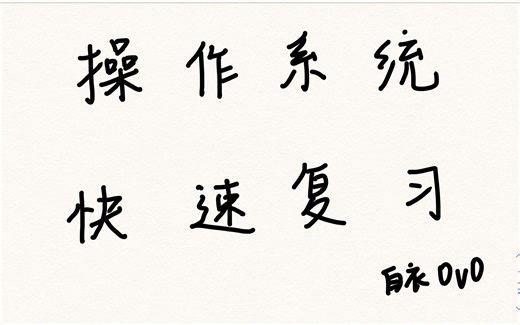 操作系统
快速复习
白衣OvO